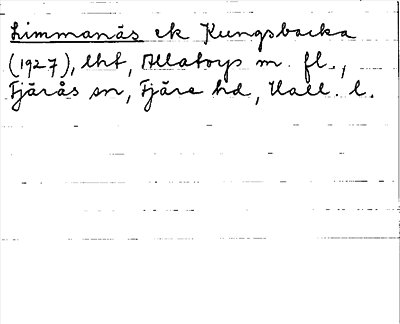 Limmanäs ek Kungsbacka
(1927), lht, Allatorps m. fl.,
Fjärås sn, Fjäre hd, Hall. l.